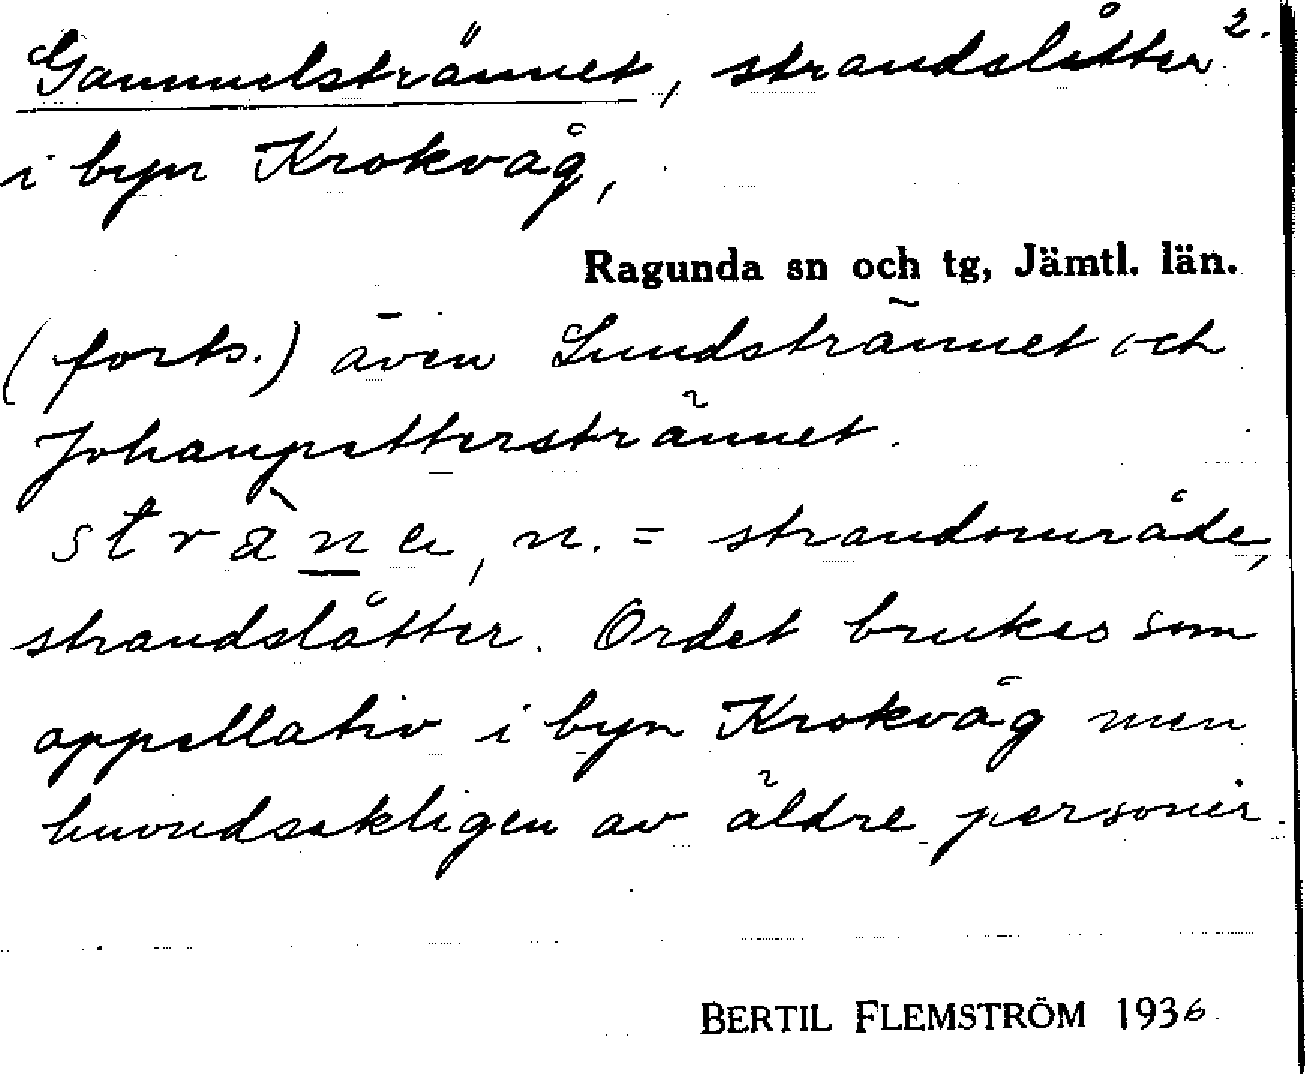 Gammelstrännet, strandslåtter 2.
i byn Krokvåg,
Ragunda sn och tg, Jämtl. län.
(forts.) även Lundstrännet och
Johanpetterstrännet.
n. = strandområde,
strandslåtter. Ordet brukas som
appellativ i byn Krokvåg men
huvudsakligen av äldre personer.
BERTIL FLEMSTRÖM 1936